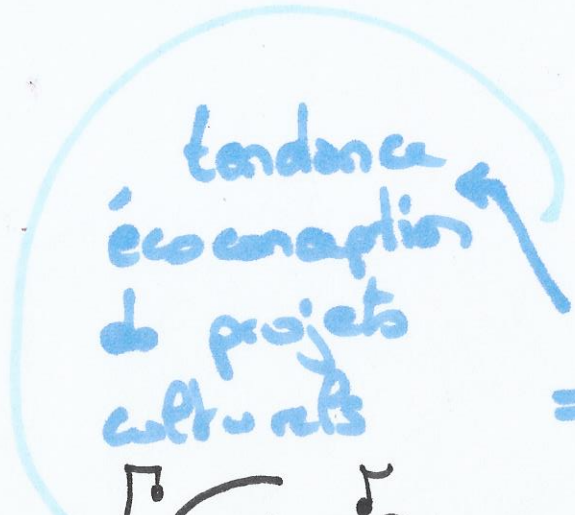 tendance
écoconception
de projets
culturels
=